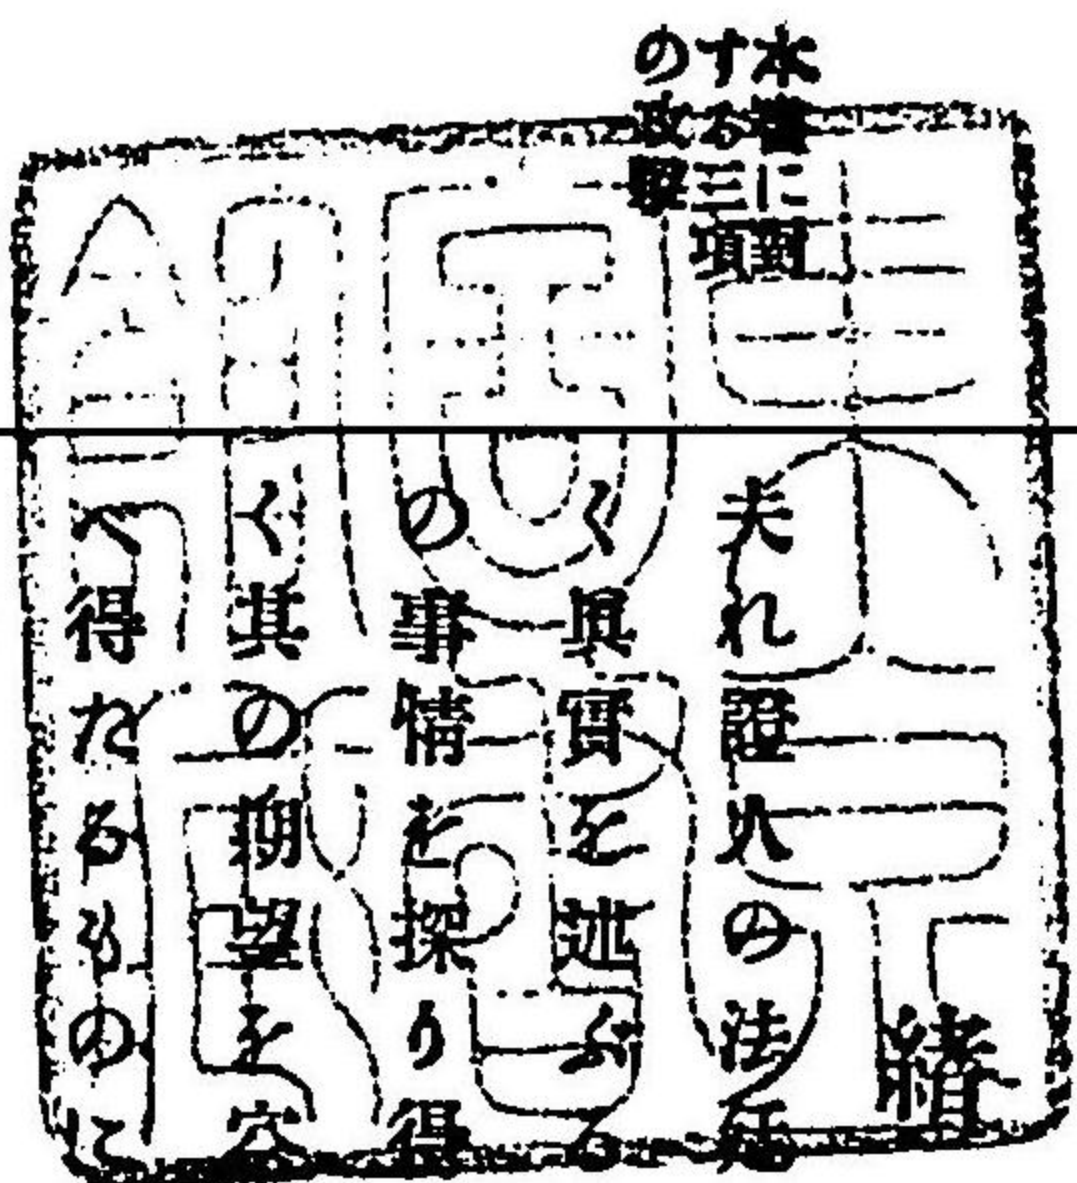 本書に對
する三項
の攻擊
緒
夫れ證人の法廷
く眞實を述ぶる
の事情を探り得
ぐ其の期望を空
へ得たるものに